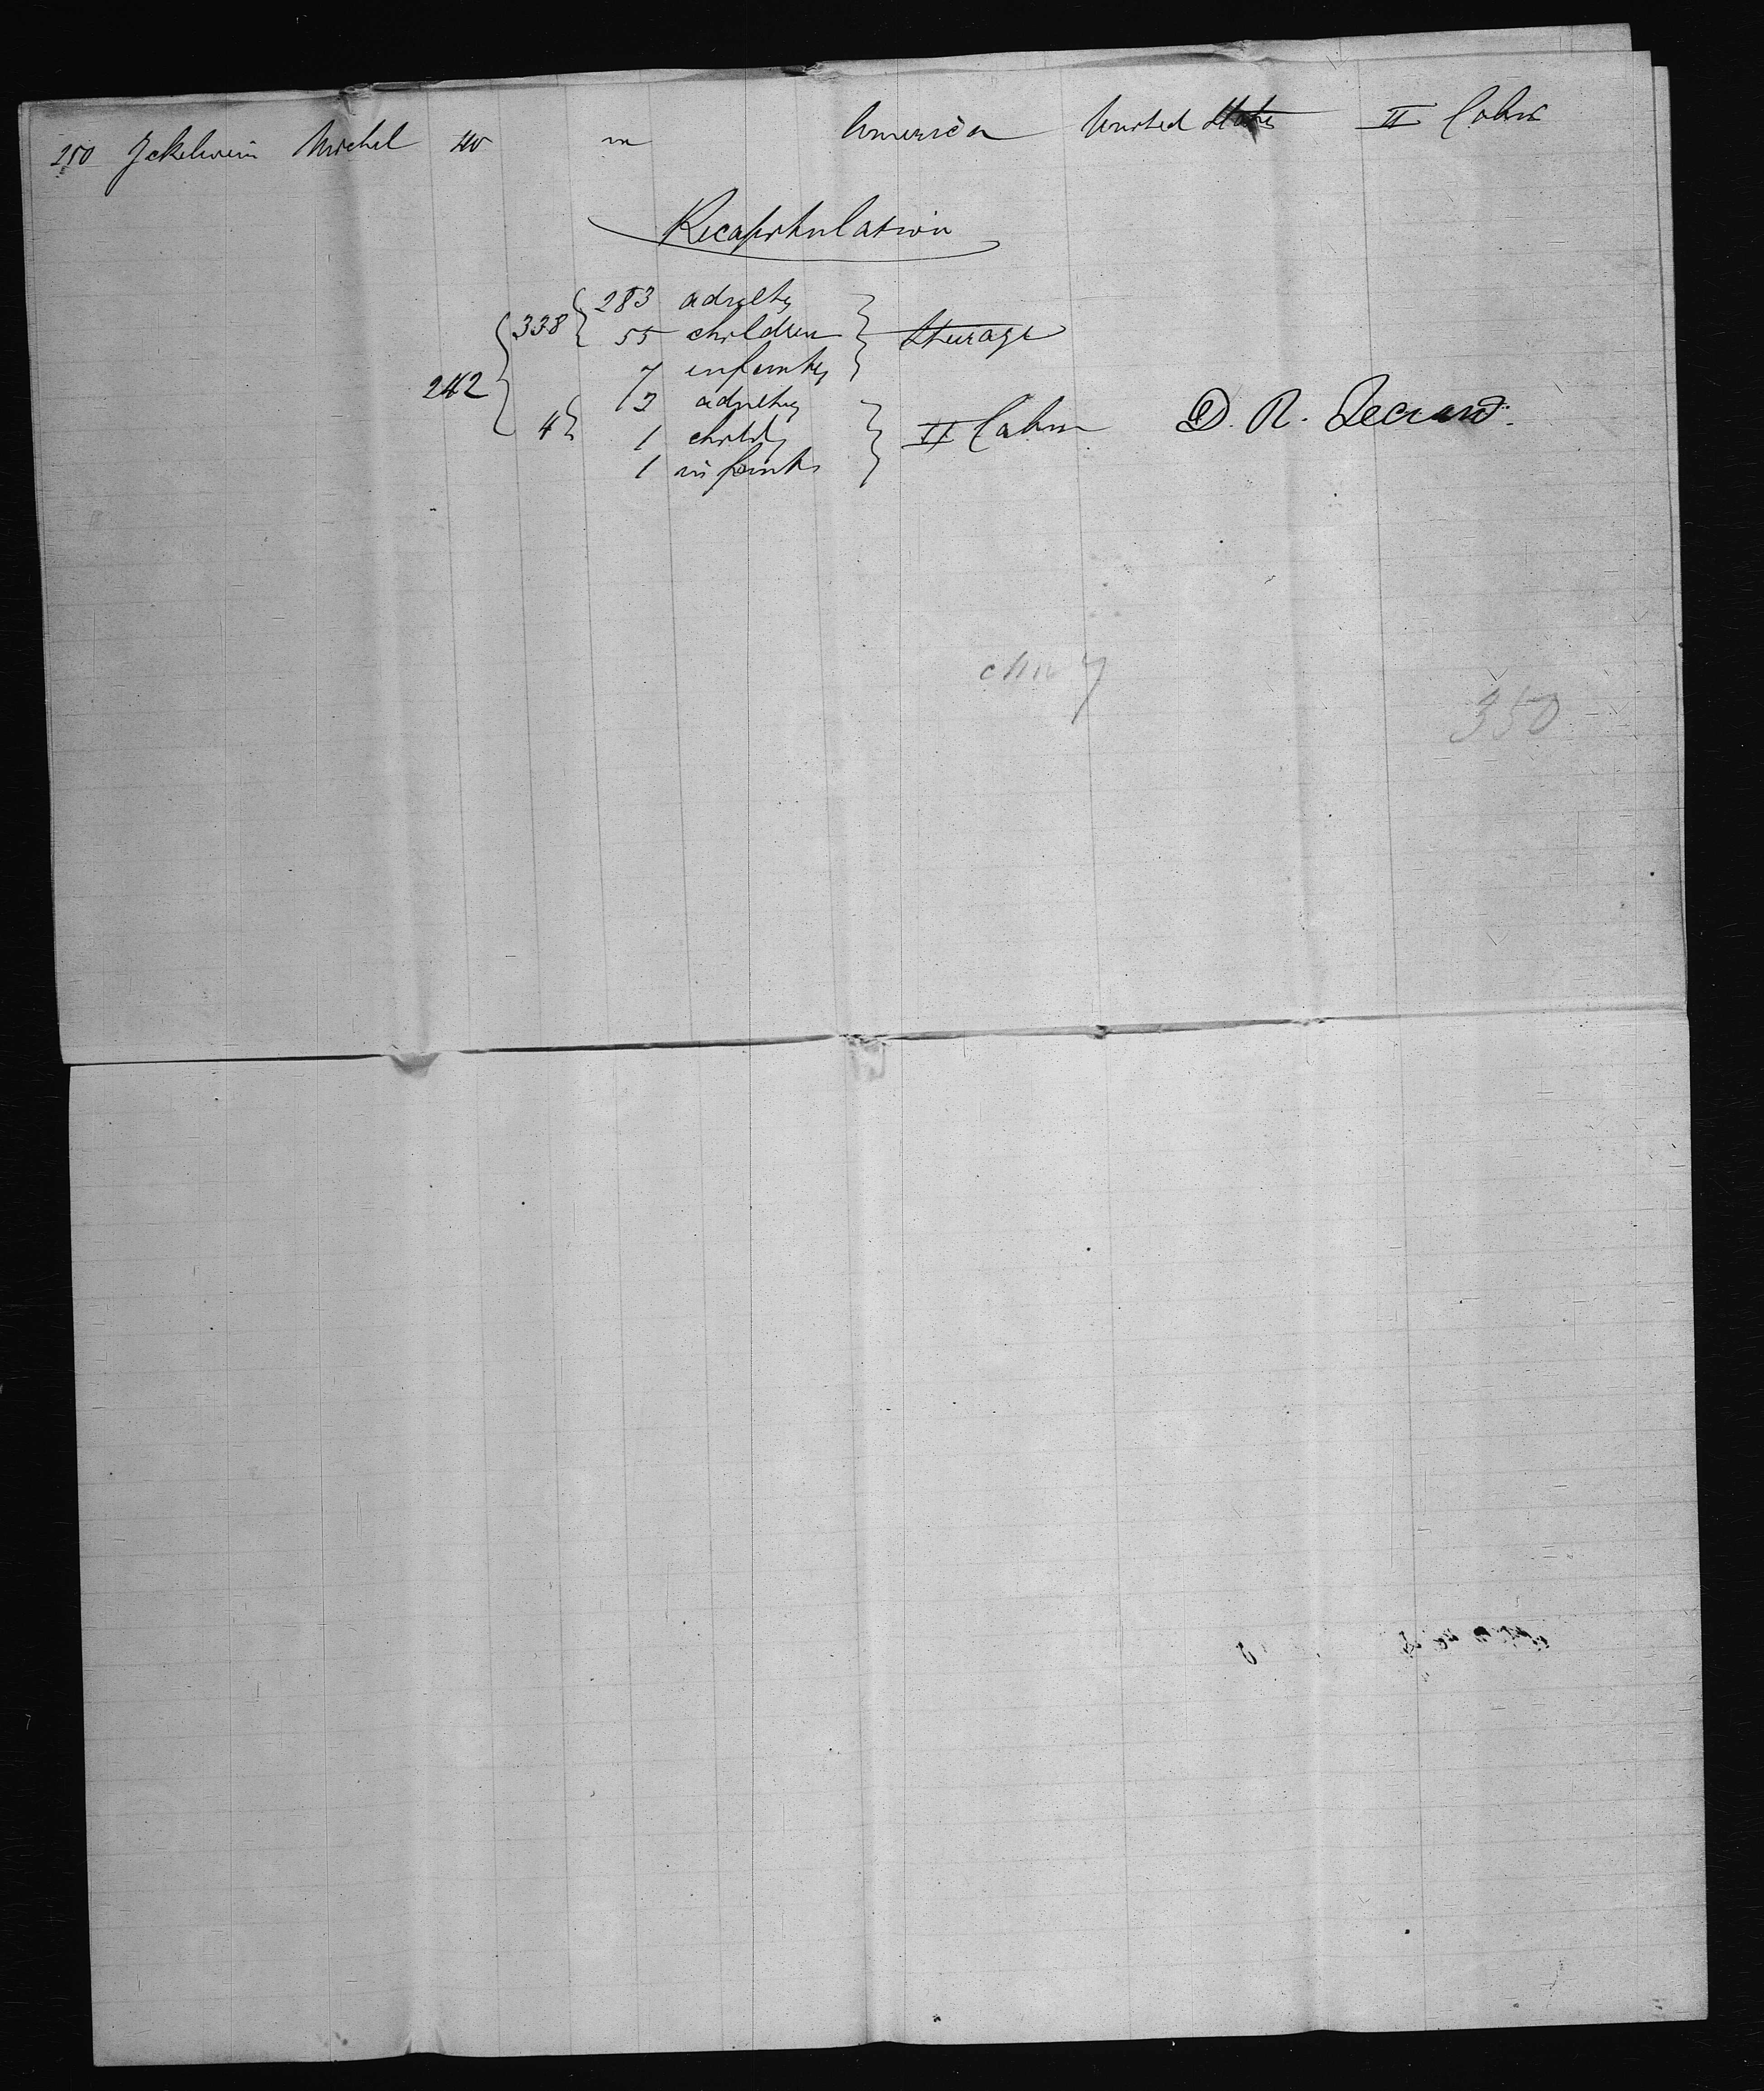 250 Jckelwein Michel 40 m America United States II Cabin
Recapitulation
283 adults
338 55 children Steerage
7 infants
242 3 adults
4 1 child II Cabin D. R.
1 infant
350